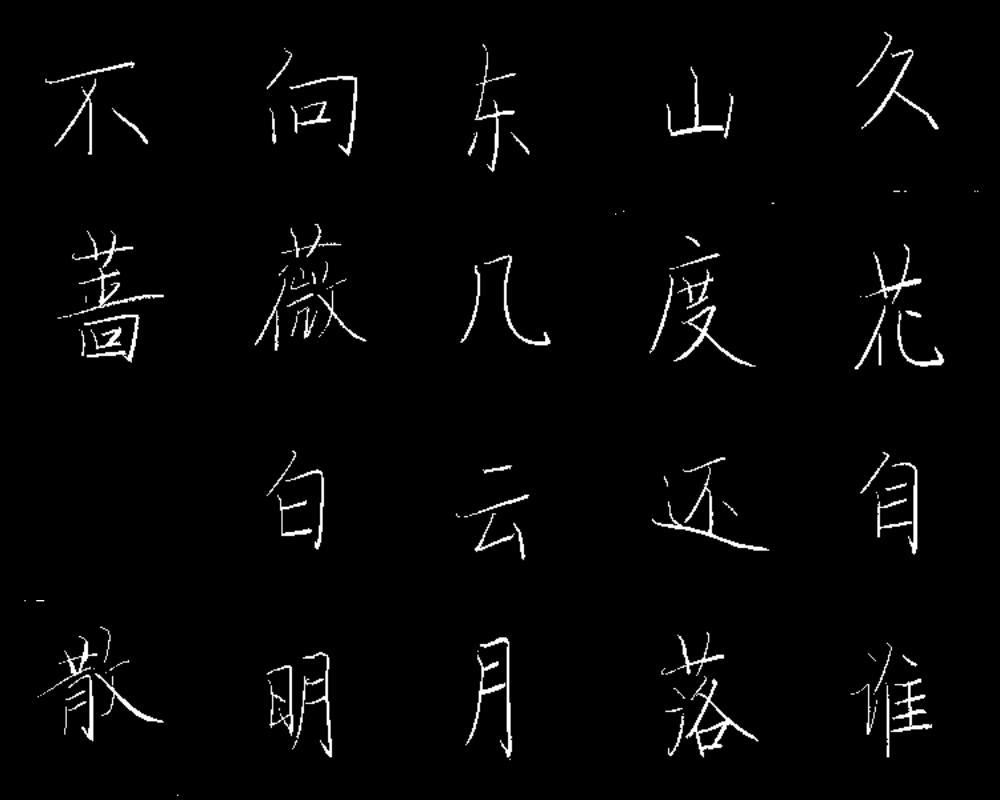 不向东山久
蔷薇几度花
白云还自
散明月落谁